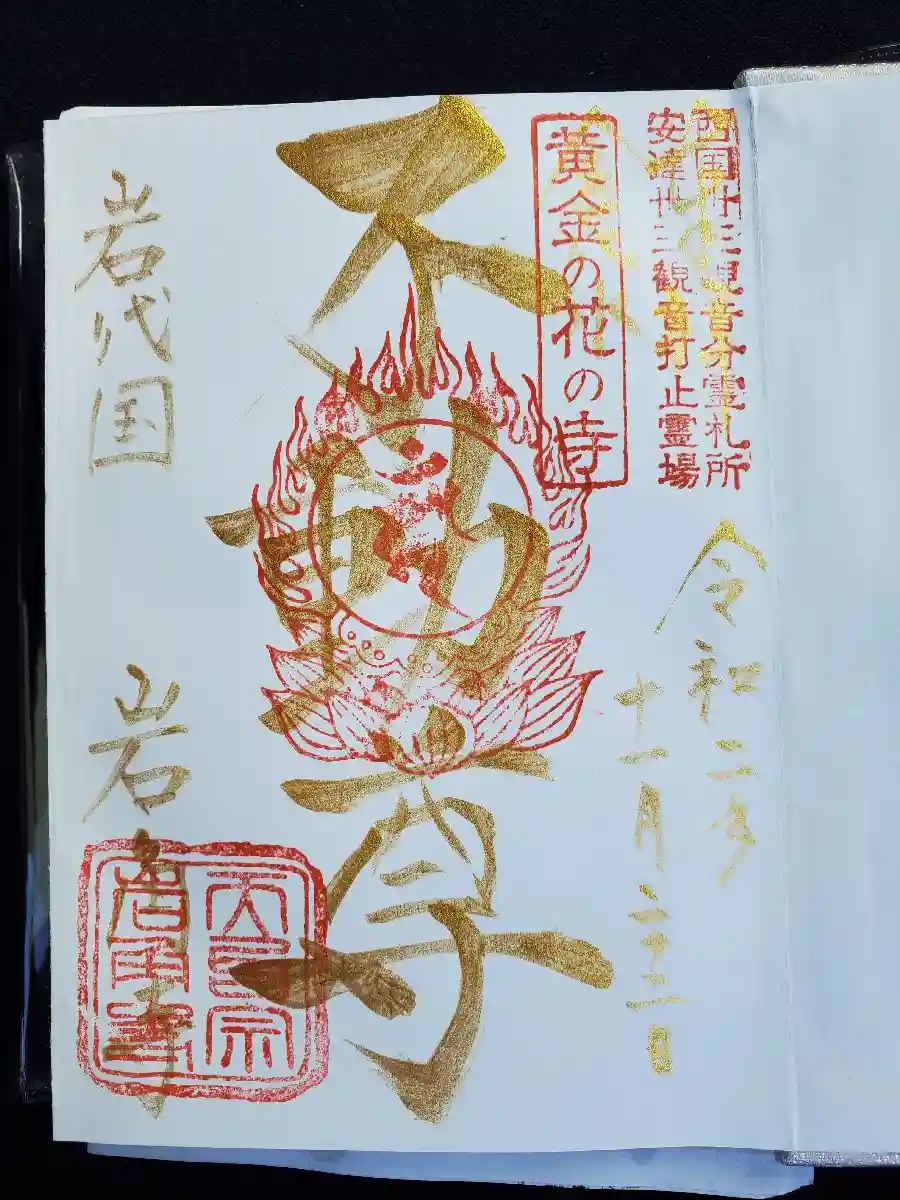 西国卅三観音分霊札所
安達卅三観音打止霊場
令和二年
十一月二十三日
黄金の花の寺
不動尊
岩代国 岩角寺
天台宗
岩角寺